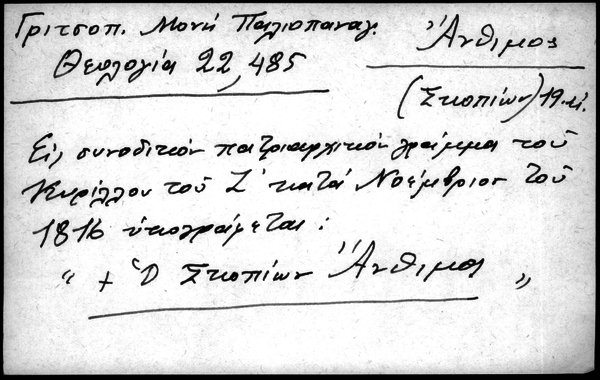 Γριτσοπ. Μονή Παλιοπαναγ.
Θεολογία 22, 485
Ἄνθιμος
(Σκοπίων) 19. αἰ.
Εἰς συνοδικόν πατριαρχικόν γράμμα τοῦ
Κυρίλλου τοῦ Ζ' κατά Νοέμβριον τοῦ
1816 ὑπογράφεται:
“ + Ὁ Σκοπίων Ἄνθιμος ”